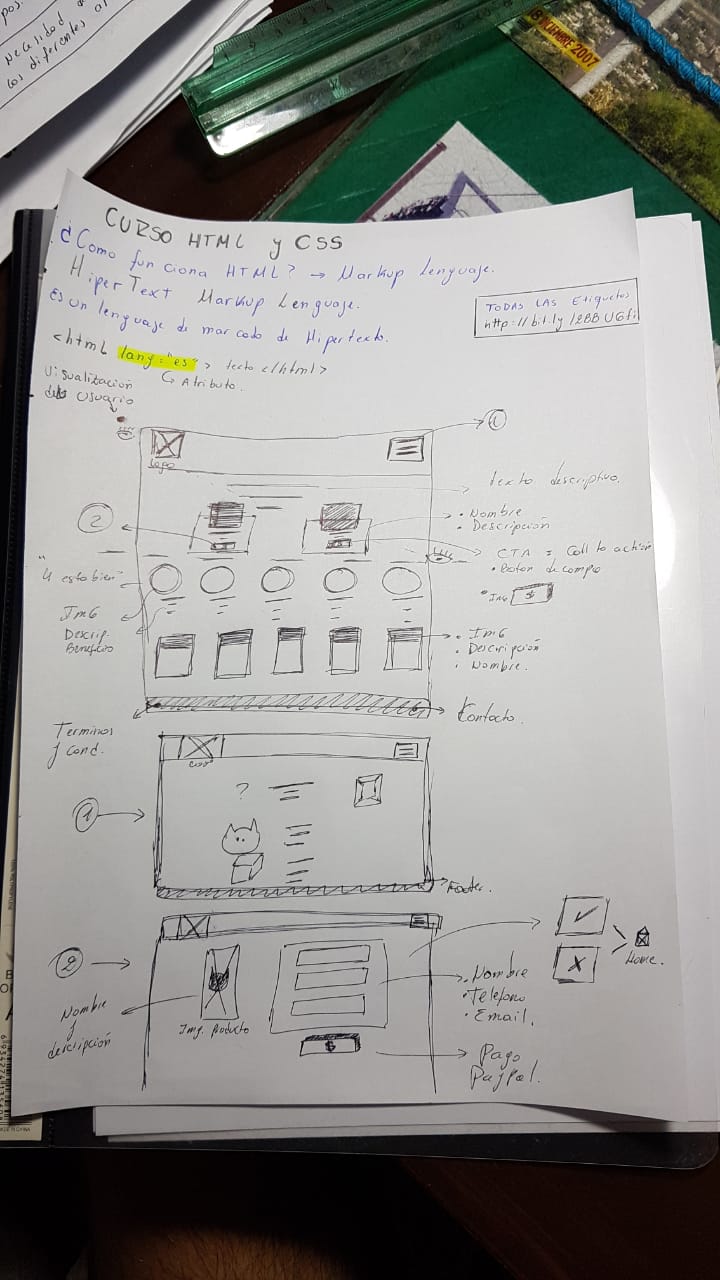 pos.
Necesidad
los diferentes al
DICIEMBRE 2007
CURSO HTML y CSS
¿Como funciona HTML? → Markup Lenguaje.
HiperText Markup Lenguaje.
Es un lenguaje de marcado de Hipertexto.
TODAS LAS Etiquetas
<html lang="es"> texto </html>
↳ Atributo.
Visualización
Usuario
Logo
1
texto descriptivo.
2
• Nombre
• Descripción
CTA = Call to action
• Boton de compra
"4 esta bien"
• IMG $
IMG
Descrip.
Beneficios
• IMG
• Descripción
• Nombre.
Kontacto.
Terminos
y cond.
?
1
Footer.
✓
X
Home.
2
Nombre
y
descripción
Img. Producto
• Nombre
• Teléfono
• Email.
$
Pago
Paypal.